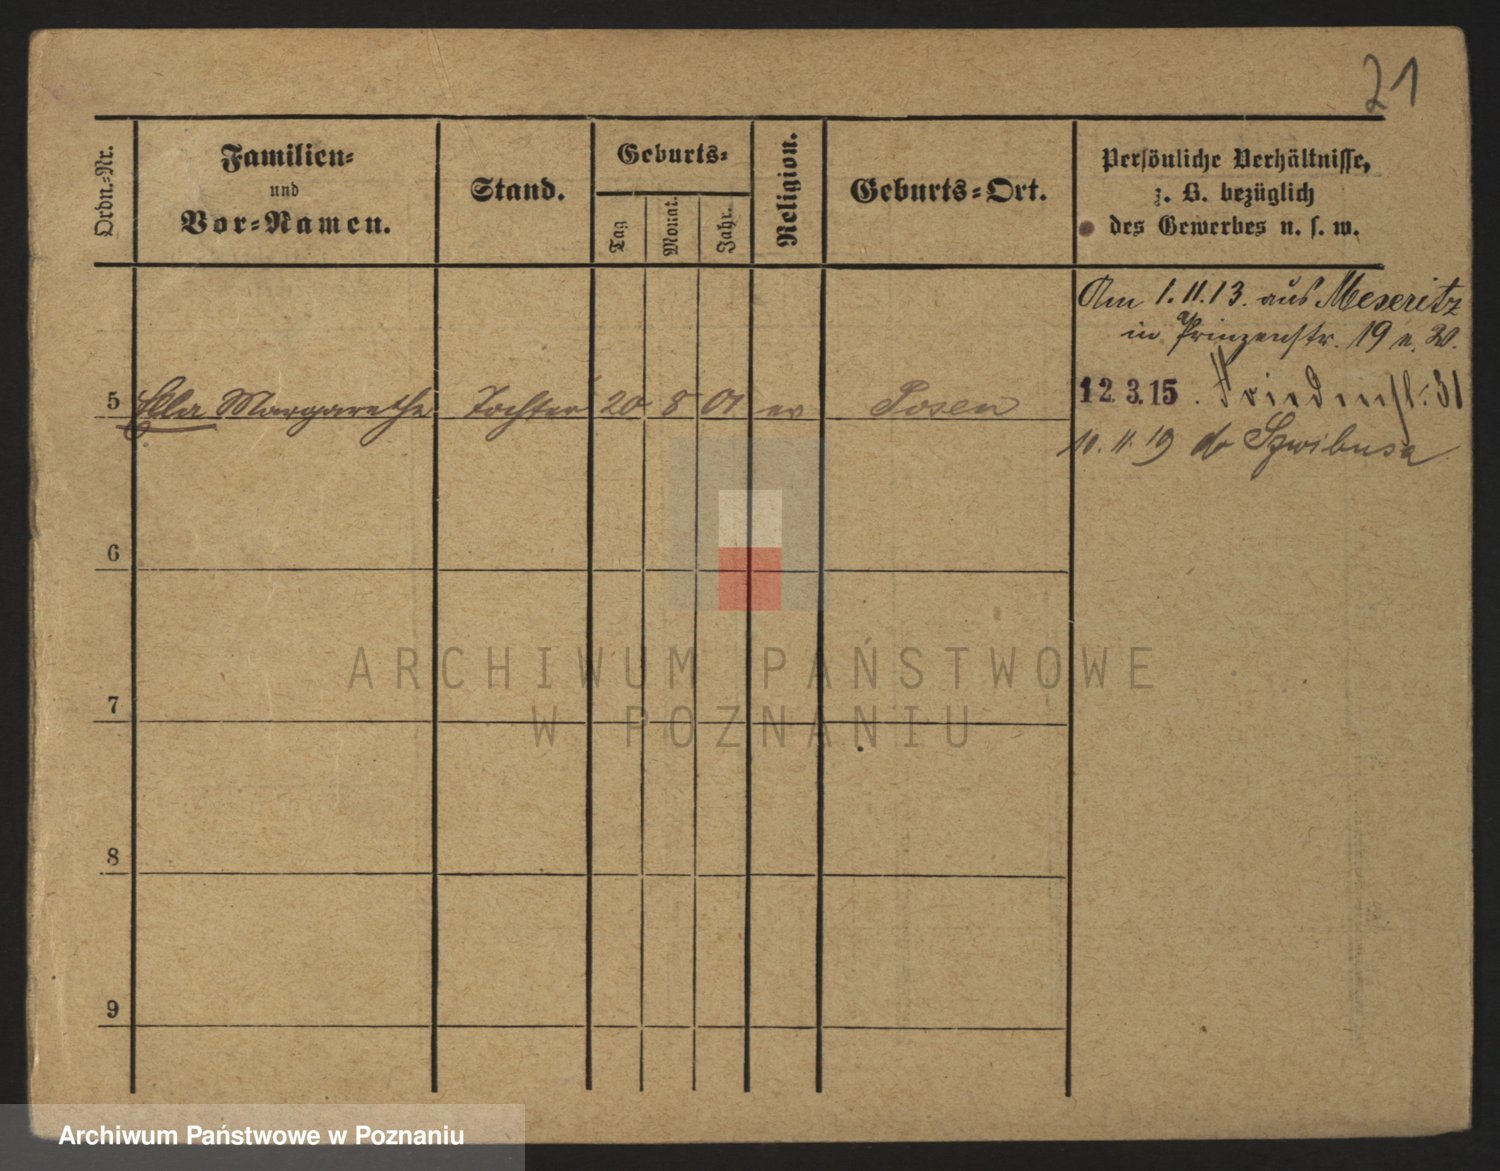 21
Ordn.-Nr.
Familien-
und
Vor-Namen.
Stand.
Geburts-
Tag
Monat.
Jahr.
Religion.
Geburts-Ort.
Persönliche Verhältnisse,
z. B. bezüglich
des Gewerbes u. s. w.
Am 1.11.13. aus Meseritz
in Prinzenstr. 19 n. W.
5 Ella Margarethe Tochter 20 8 01 ev Posen
12.3.15. Friedenstr. 31
10.11.19 do Szwibusa
6
7
8
9
ARCHIWUM PAŃSTWOWE
W POZNANIU
Archiwum Państwowe w Poznaniu